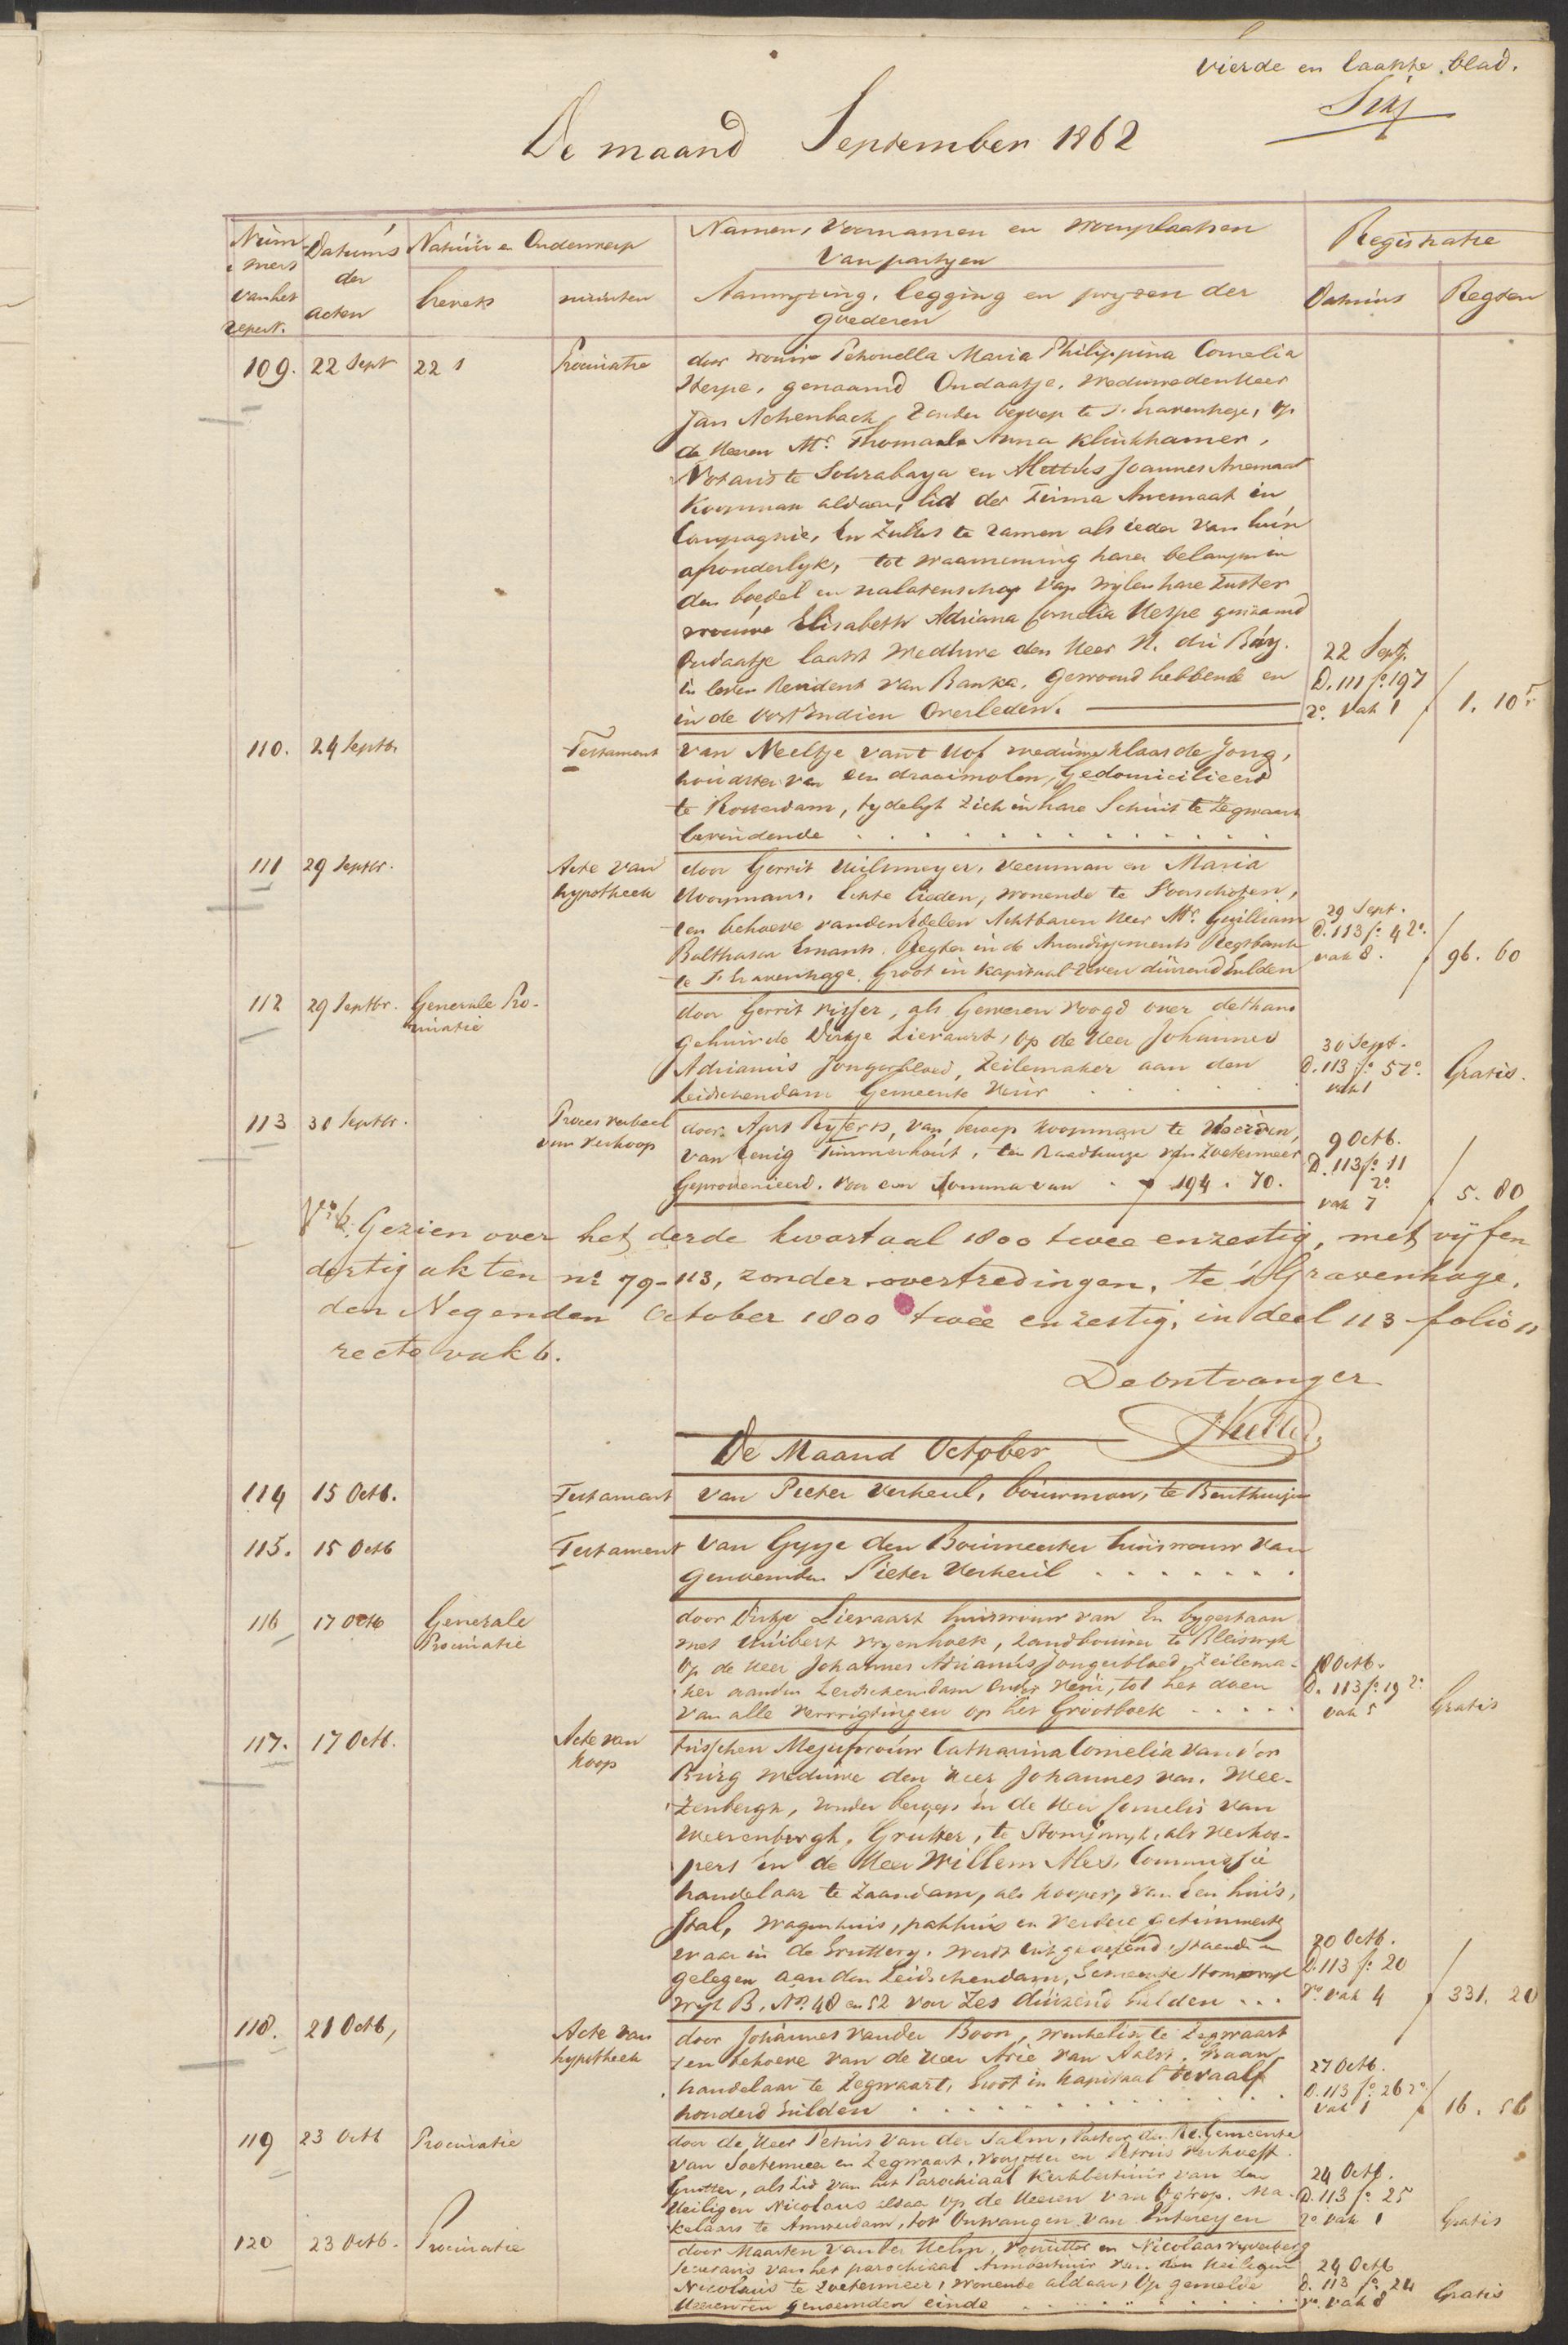 vierde en laatste blad.
De maand September 1862
Num- Datums Natuur en Onderwerp Namen, Voornamen en woonplaatsen Registratie
mers der Van partyen
van het acten brevets minuten Aanwyzing, legging en pryzen der Datums Regten
repert. goederen
109. 22 Sept 22 1 Procuratie door vrouw Petronella Maria Philippina Cornelia
Hespe, genaamd Oudaatje, weduwe den Heer
Jan Achenbach, zonder beroep te s. Gravenhage, op
de Heeren Mr. Thomas Anna Klinkhamer,
Notaris te Sourabaya en Mattheus Joannes Anemaat
Koopman aldaar, lid der Firma Anemaat en
Compagnie, en Zulks te zamen als ieder van hun
afzonderlyk, tot waarneming harer belangen in
den boedel en nalatenschap van wylen hare Zuster
vrouwe Elisabeth Adriana Cornelia Hespe genaamd
Oudaatje laatst weduwe den Heer H. du Bÿ. 22 Sept.
in leven Resident van Banka, gewoond hebbende en D. 111 fo. 197
in de Oost Indien Overleden. ro. vak 1 1. 10 5
110. 24 Septbr Testament van Neeltje van t Hof weduwe Klaas de Jong,
houdster van een draaimolen, gedomicilieerd
te Rotterdam, tydelyk zich in hare Schuit te Zegwaart
bevindende
111 29 Septbr. Acte van door Gerrit Uilsmeyer, veenman en Maria
hypotheek Kooymans, Echte lieden, wonende te Voorschoten,
ten behoeve van den Edelen Achtbaren Heer Mr. Guilliam 29 Sept.
Balthasar Emants, Regter in de Arrondissements Regtbank D. 113 fo. 4 ro.
te s Gravenhage, Groot in Kapitaal Zeven duizend Gulden vak 8. 96. 60
112 29 Septbr. Generale Pro- door Gerrit Visser, als Geweren voogd over de thans
curatie gehuwde Dirkje Lievaart, op de Heer Johannes 30 Sept.
Adrianus Jongerbloed, Zeilemaker aan den D. 113 fo 5 ro. Gratis.
Leidschendam Gemeente Veur vak 1
113 30 Septbr. Proces verbaal door Aart Ryterts, van beroep koopman te Woerden, 9 Octb.
van verkoop van Eenig Timmerhout, ten Raadhuize van Zoetermeer D. 113 fo. 11
Geprovenieerd. voor een Somma van f 194. 70. vak 7 5. 80
Gezien over het derde kwartaal 1800 twee en zestig, met vyf en
dertig akten no 79-113, zonder overtredingen, te s'Gravenhage.
den Negenden October 1800 twee en zestig, in deel 113 folio 11
recto vak 6.
De Ontvanger
De Maand October
114 15 Octb. Testament van Pieter Verheul, bouwman, te Benthuizen
115. 15 Octb Testament van Gysje den Boumeester huisvrouw van
genoemden Pieter Verheul
116 17 Octb Generale door Dirkje Lievaart huisvrouw van En bygestaan
Procuratie met Huibert Rypenhoek, Landbouwer te Bleiswyk
Op de Heer Johannes Adrianus Jongerbloed, Zeilema- 18 Octb.
ker aan den Leidschendam onder Veur, tot het doen D. 113 fo. 19 ro
van alle verrrigtingen op het Grootboek vak 5 Gratis
117. 17 Octb. Acte van tusschen Mejufvrouw Catharina Cornelia van der
Koop Burg weduwe den Heer Johannes van Wee-
zenbergh, zonder beroep En de Heer Cornelis van
Weezenbergh, Grutter, te Stompwyk, als verkoo-
pers En de Heer Willem Alex, Commissie
handelaar te Zaandam, als kooper, van Een huis,
stal, wagenhuis, pakhuis en verdere getimmerte
waar in de Gruttery, wordt uitgeoefend, staande en 20 Octb.
gelegen aan den Leidschendam, Gemeente Stompwyk D. 113 fo. 20
Wyk B, No. 48 en 52 voor Zes duizend Gulden ro. vak 4 331. 20
118. 21 Octb, Acte van door Johannes van der Boon, winkelier te Zegwaart
hypotheek ten behoeve van de Heer Arie van Aalst, Graan 27 Octb.
handelaar te Zegwaart, Groot in Kapitaal twaalf D. 113 fo. 26 ro
honderd Gulden vak 1 16. 56
119 23 Octb Procuratie door de Heer Petrus van der Salm, Pastoor der R.C. Gemeente
van Soetermeer en Zegwaart, voorzitter en Petrus Verhoeff
Grutter, als Lid van het Parochiaal Kerkbestuur van den 24 Octb.
Heiligen Nicolaus aldaar op de Heeren van Ogtrop, Ma- D. 113 fo 25
kelaars te Amsterdam, tot Ontvangen van Interessen ro vak 1 Gratis
120 23 Octb. Procuratie door Maarten van der Helm, voorzitter en Nicolaas Ryverberg
Secretaris van het parochiaal Armbestuur van den Heiligen 24 Octb
Nicolaus te Zoetermeer, wonende aldaar, Op gemelde D. 113 fo. 24
Heeren ten genoemden einde vo. vak 8 Gratis